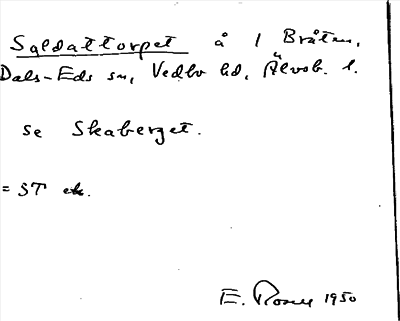 Soldattorpet å 1 Bråten,
Dals-Eds sn, Vedbo hd, Älvsb. l.
se Skaberget.
= ST ek.
E. Rosen 1950